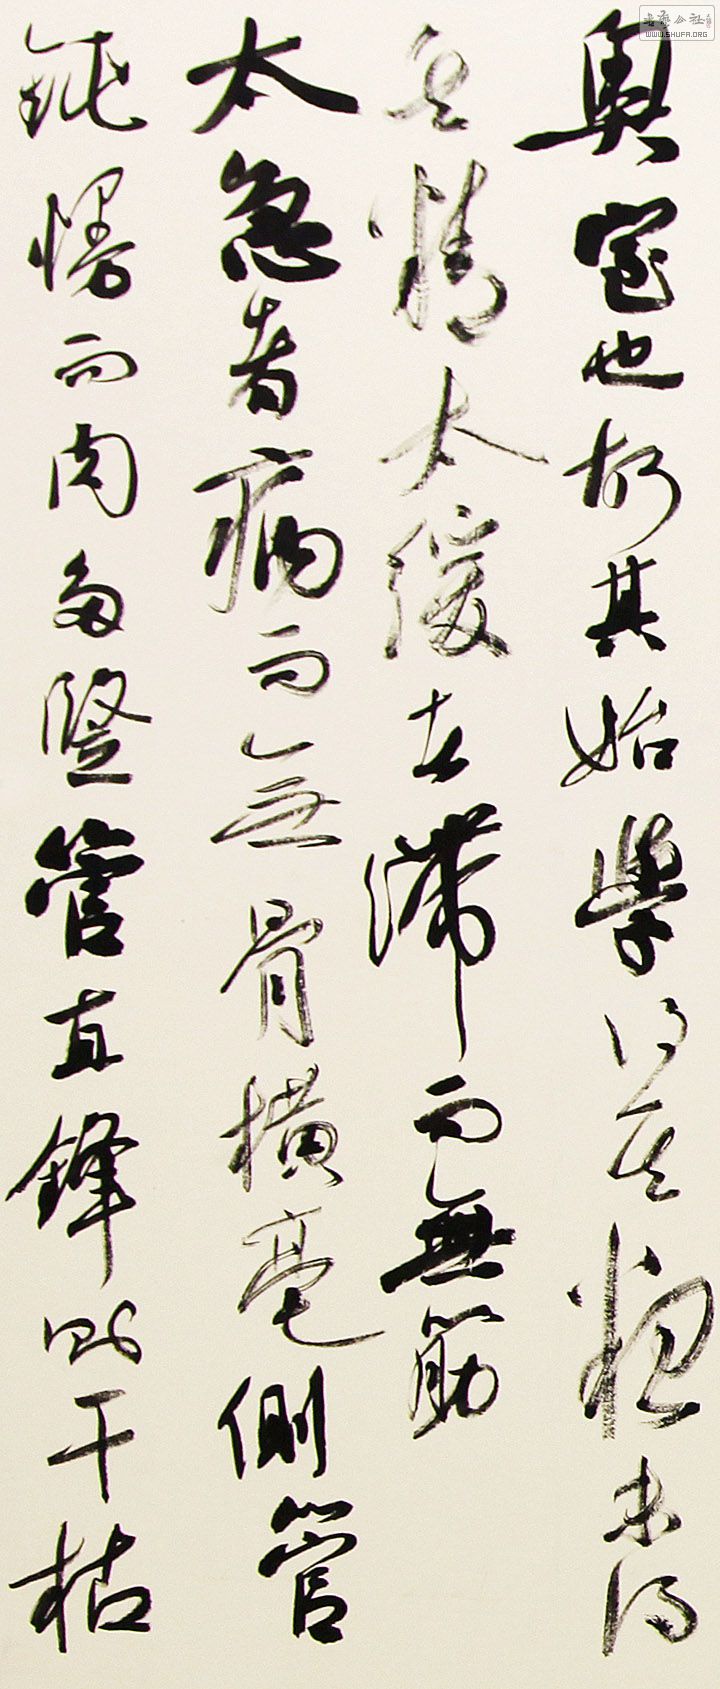 奥室也故其始學得其粗未得
其精太緩者滞而無筋
太急者病而無骨横毫側管
鈍慢而肉多竪管直鋒則干枯
书法公社
WWW.SHUFA.ORG